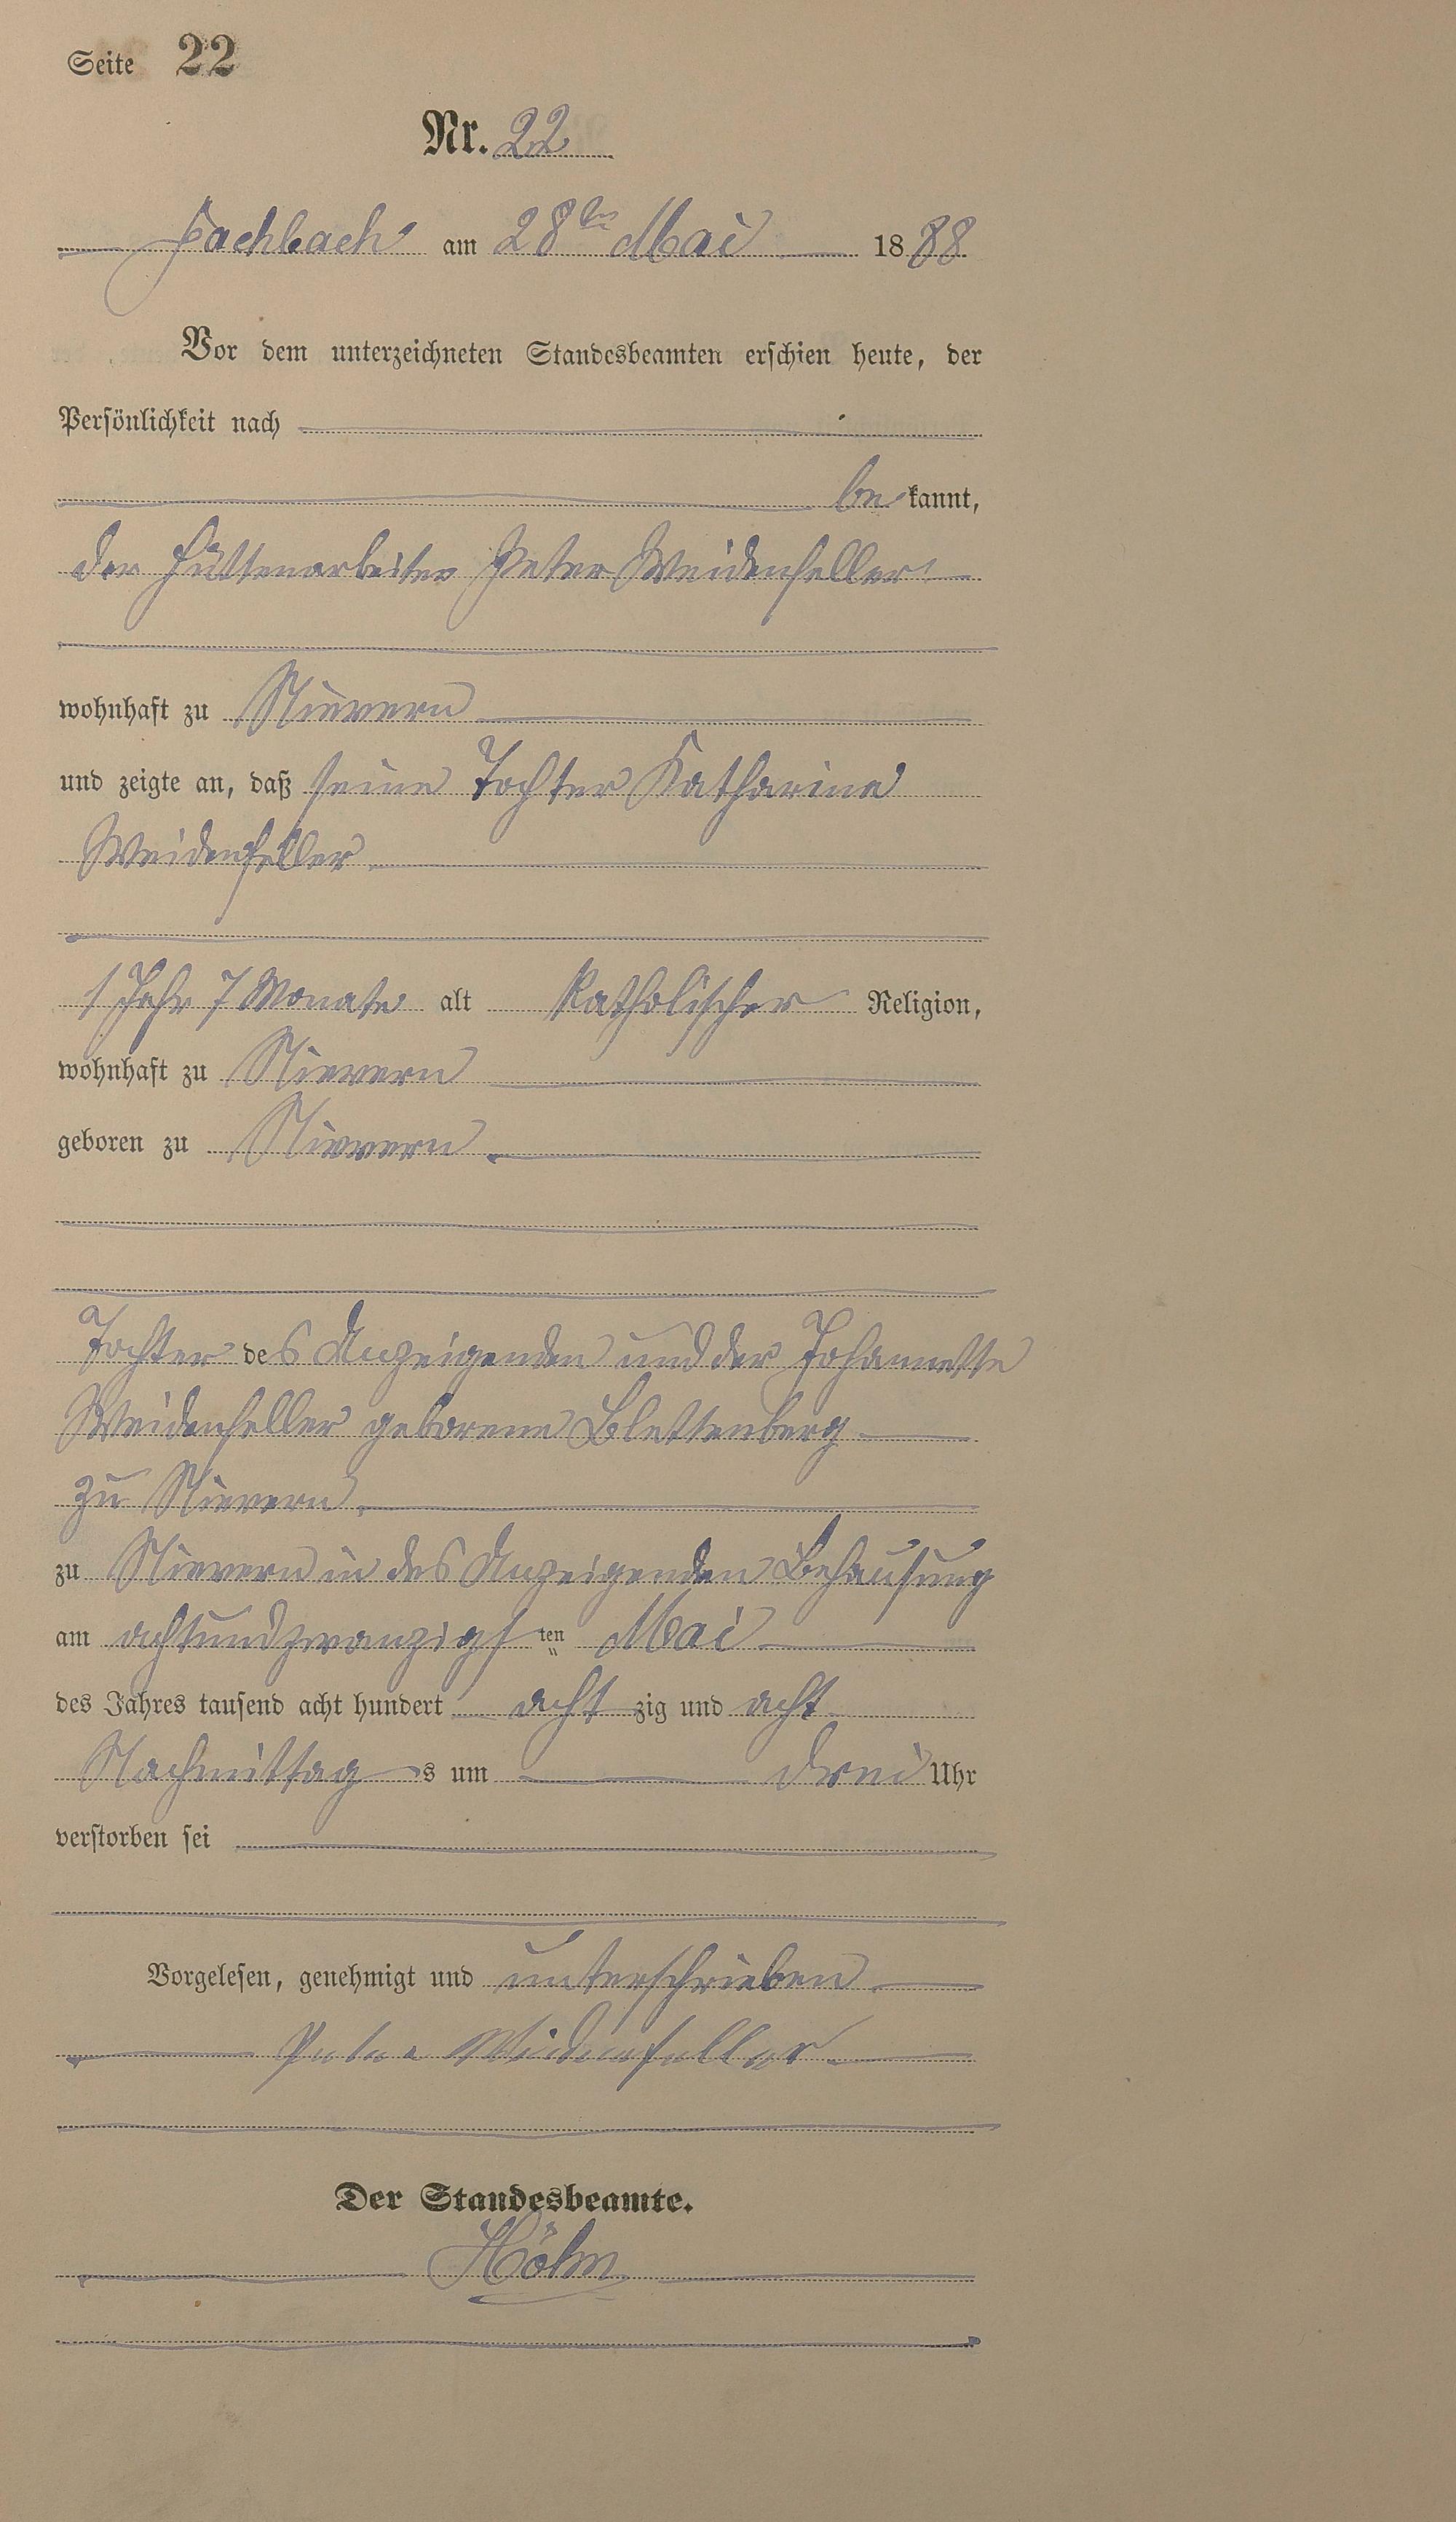 Seite 22
Nr. 22
Fachbach am 28ten Mai 1888
Vor dem unterzeichneten Standesbeamten erschien heute, der
Persönlichkeit nach
bekannt,
der Hüttenarbeiter Peter Weidenfeller
wohnhaft zu Nievern
und zeigte an, daß seine Tochter Katharina
Weidenfeller
1 Jahr 7 Monate alt katholischer Religion,
wohnhaft zu Nievern
geboren zu Nievern.
Tochter des Anzeigenden und der Johannette
Weidenfeller geborene Blettenberg
zu Nievern.
zu Nievern in des Anzeigenden Behausung
am achtundzwanzigsten Mai
des Jahres tausend acht hundert achtzig und acht
Nachmittags um drei Uhr
verstorben sei
Vorgelesen, genehmigt und unterschrieben
Peter Weidenfeller
Der Standesbeamte.